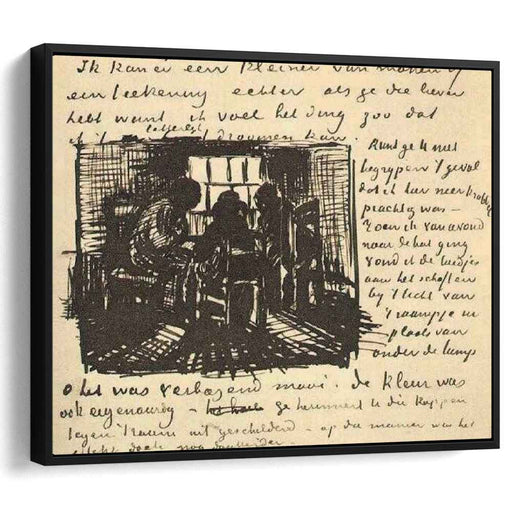 Ik kan er een kleiner van maken of
een teekening echter als ge die liever
hebt want ik voel het ding zoo dat
ik 't letterlijk droomen kan.
Kunt ge U niet
begrijpen 't geval
dat ik hier neerkrabbel
prachtig was –
Toen ik vanavond
naar de hut ging
vond ik de luidjes
aan het schoften
bij 't licht van
't raampje in
plaats van
onder de lamp
o het was verbazend mooi. De kleur was
ook eigenaardig – ge herinnert U die koppen
tegen 't raam uit geschilderd – op die manier was het
effekt doch nog donkerder.